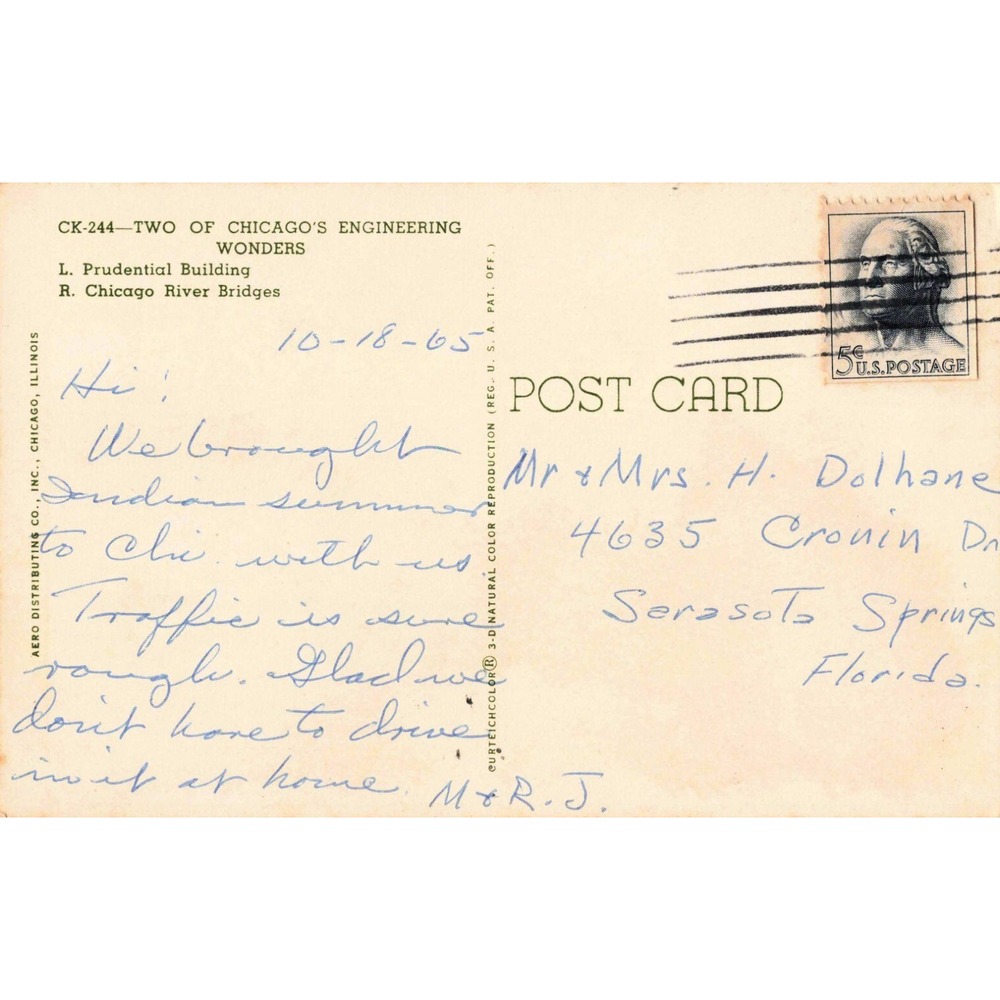 CK-244—TWO OF CHICAGO'S ENGINEERING
WONDERS
L. Prudential Building
R. Chicago River Bridges
10-18-65
Hi!
We brought
Indian summer
to Chi. with us.
Traffic is sure
rough. Glad we
don't have to drive
in it at home.
M & R. J.
AERO DISTRIBUTING CO., INC., CHICAGO, ILLINOIS
CURTEICHCOLOR® 3-D NATURAL COLOR REPRODUCTION (REG. U. S. A. PAT. OFF.)
5¢
U.S. POSTAGE
POST CARD
Mr & Mrs. H. Dolhane
4635 Cronin Dr
Sarasota Springs
Florida.